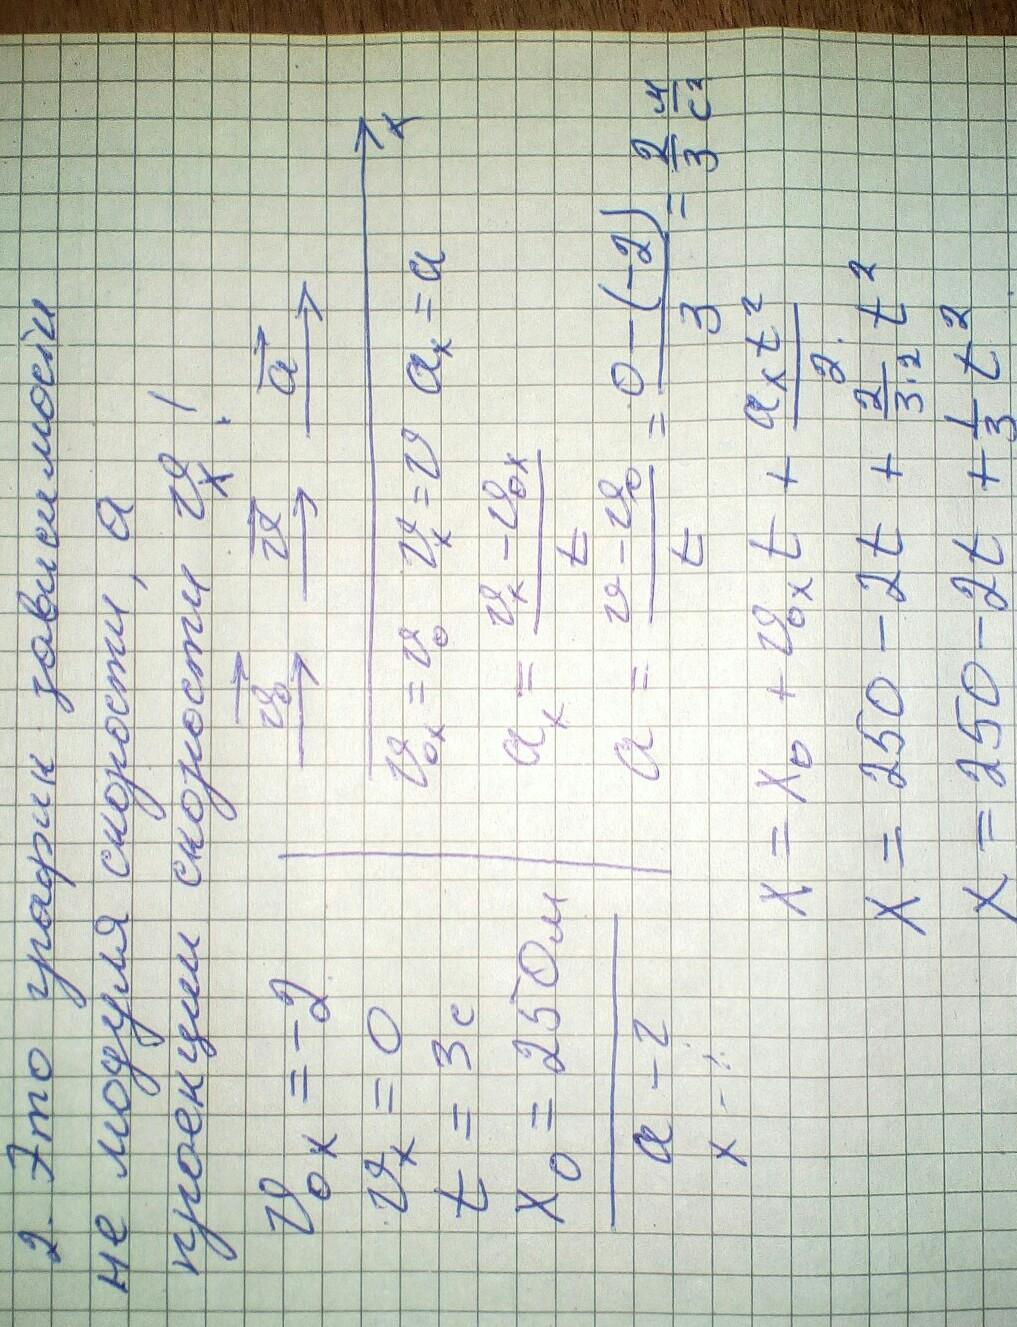 2. Это график зависимости
не модуля скорости, а
проекции скорости υₓ!
υ₀ₓ = -2
υₓ = 0
t = 3 с
x₀ = 250 м
a - ?
x - ?
υ⃗₀ υ⃗ a⃗
x
υ₀ₓ = υ₀ υₓ = υ aₓ = a
aₓ = (υₓ - υ₀ₓ)/t
a = (υ - υ₀)/t = (0 - (-2))/3 = 2/3 м/с²
x = x₀ + υ₀ₓt + aₓt²/2
x = 250 - 2t + 2/(3·2) t²
x = 250 - 2t + 1/3 t²